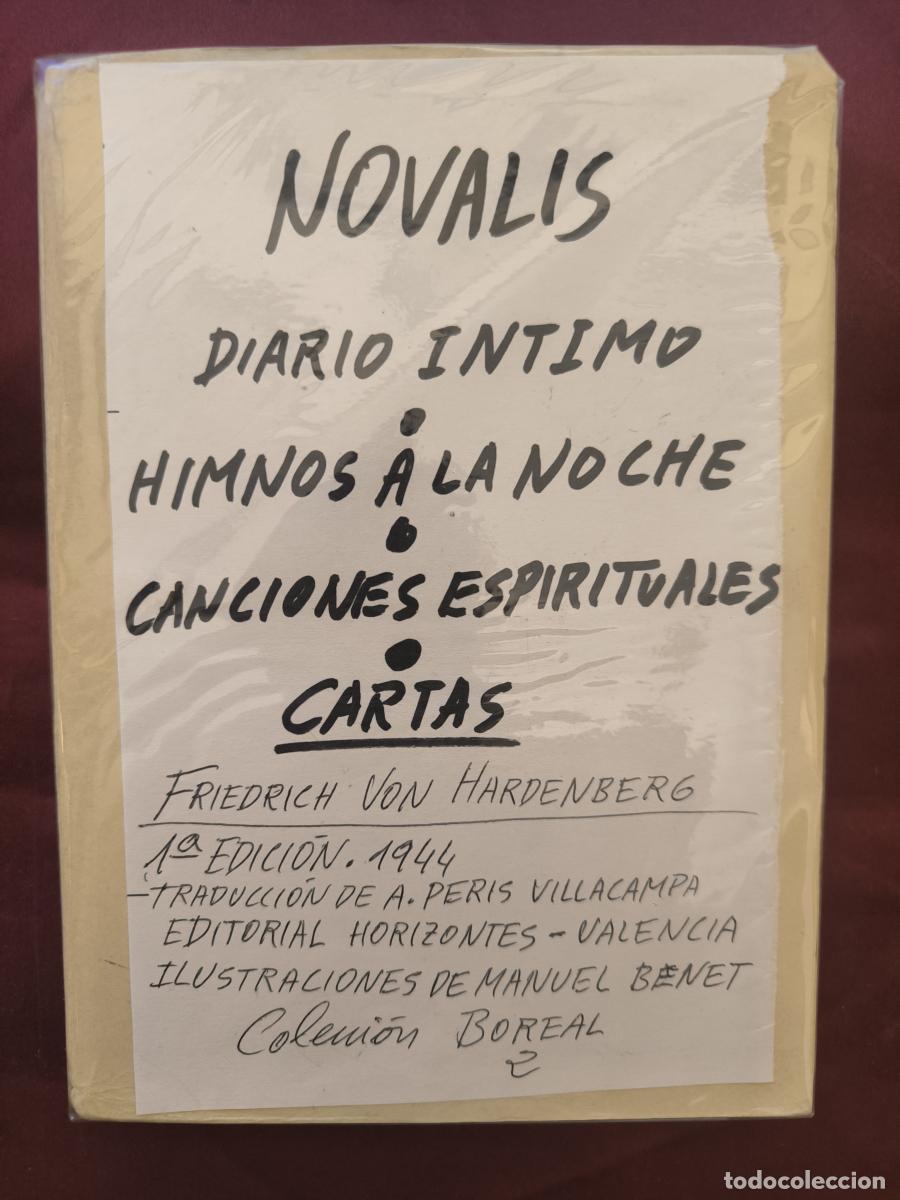 NOVALIS
DIARIO INTIMO
•
HIMNOS A LA NOCHE
•
CANCIONES ESPIRITUALES
•
CARTAS
FRIEDRICH VON HARDENBERG
1ª EDICIÓN. 1944
-TRADUCCIÓN DE A. PERIS VILLACAMPA
EDITORIAL HORIZONTES - VALENCIA
ILUSTRACIONES DE MANUEL BENET
Colección BOREAL
2
todocoleccion